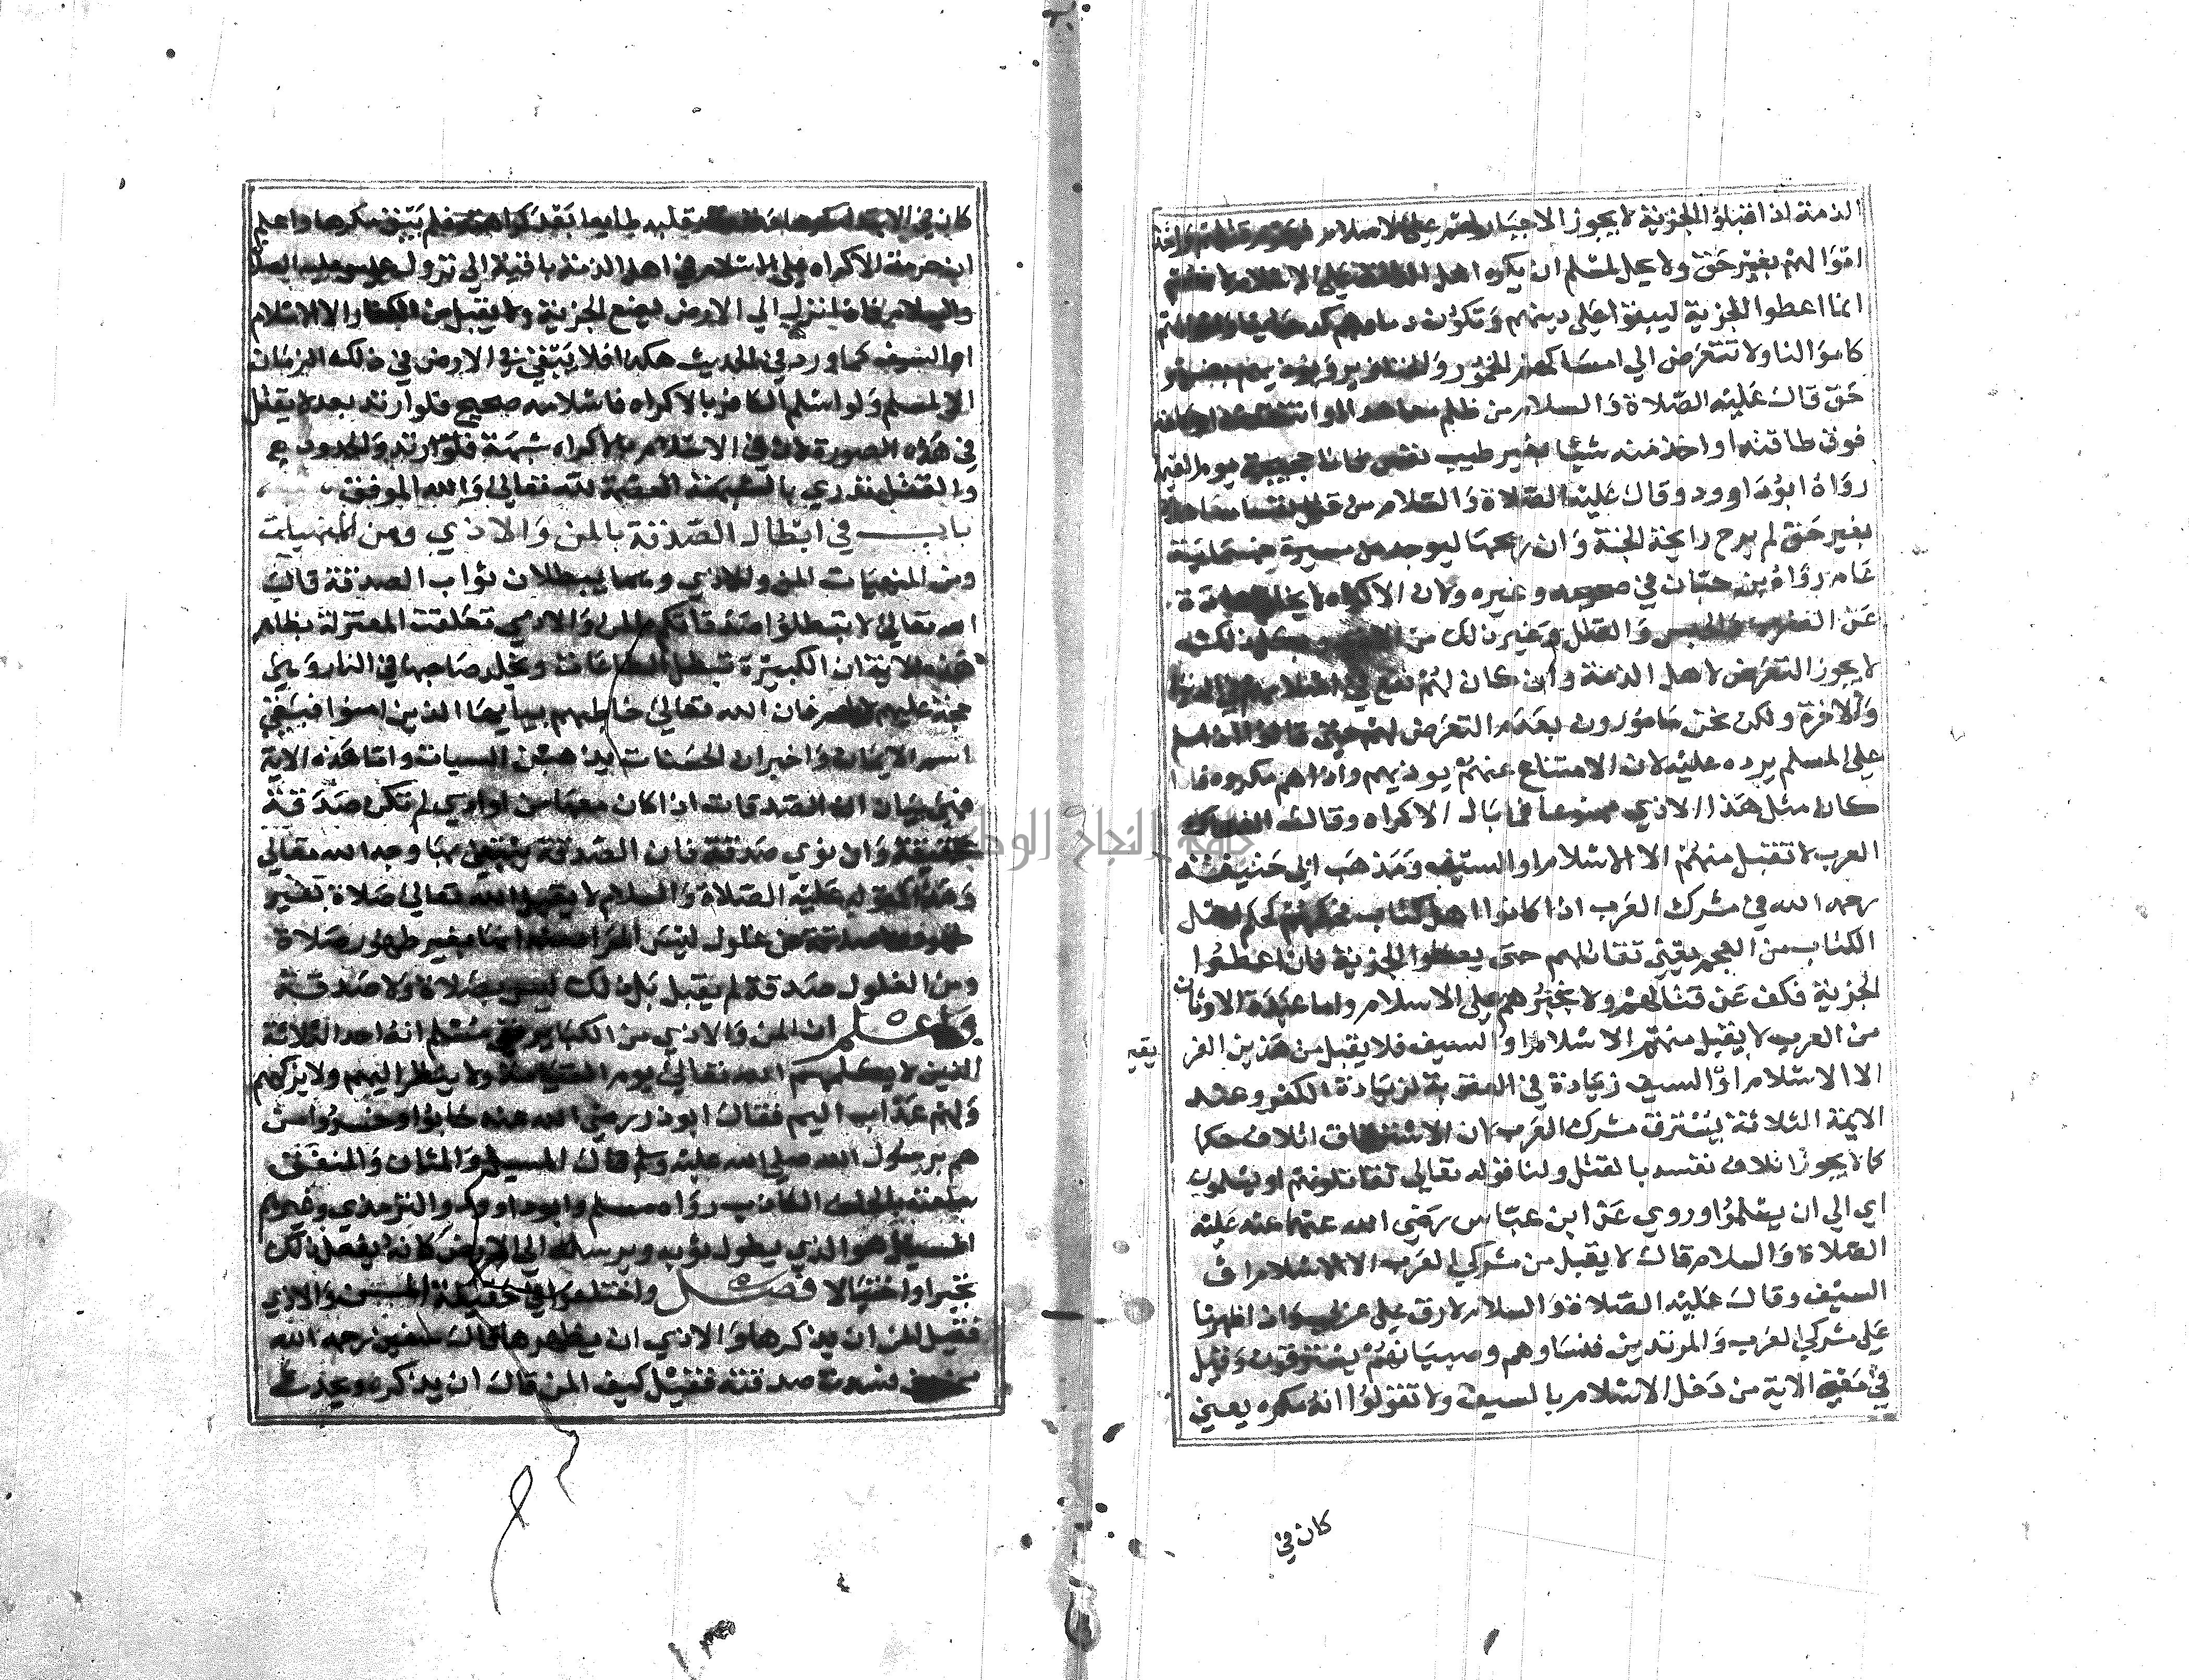 الذمة اذا قبلوا الجزية لا يجوز الاجبار لهم على الاسلام
اموالهم بغير حق ولا يحل لمسلم ان يكره اهل الذمة على الاسلام
انما اعطوا الجزية ليبقوا على دينهم وتكون دماوهم كدماينا واموالهم
كاموالنا ولا تتعرض الي امساكهم للخمور والخنازير
حق قال عليه الصلاة والسلام من ظلم معاهدا او انتقصه او كلفه
فوق طاقته او اخذ منه شيئا بغير طيب نفس فانا حجيجه يوم القيمة
رواه ابو داوود وقال عليه الصلاة والسلام من قتل نفسا معاهدة
بغير حق لم يرح رايحة الجنة وان ريحها ليوجد من مسيرة خمسماية
عام رواه بن حبان في صحيحه وغيره ولان الاكراه لا يخلوا عادة
عن الضرب والحبس والقتل وغير ذلك من
لا يجوز التعرض لاهل الذمة وان كان لهم نفع في اسلامهم في الدنيا
والاخرة ولكن نحن مامورون بعدم التعرض لهم حتى قالوا
على المسلم يرده عليه لان الامتناع عنهم يوذيهم واذاهم مكروه فاذا
كان مثل هذا الاذي ممنوعا فما بال الاكراه وقالت
العرب لا تقبل منهم الا الاسلام او السيف ومذهب ابي حنيفة
رحمه الله في مشرك العرب اذا كانوا اهل كتاب فحكمهم كحكم اهل
الكتاب من العجم يعني تقاتلهم حتى يعطوا الجزية فان اعطوا
الجزية فكف عن قتالهم ولا يجبرهم على الاسلام واما عبدة الاوثان
من العرب لا يقبل منهم الا الاسلام او السيف فلا يقبل من هذين الفر يقين
الا الاسلام او السيف زيادة في العقوبة لزيادة الكفر وعند
الايمة الثلاثة يسترق مشرك العرب لان الاسترقاق اتلاف حكما
كما لا يجوز اتلاف نفسه بالقتل ولنا قوله تعالي تقاتلونهم او يسلمون
اي الي ان يسلموا وروي عن ابن عباس رضي الله عنهما عنه عليه
الصلاة والسلام قال لا يقبل من مشركي العرب الا الاسلام او
السيف وقال عليه الصلاة والسلام لا رق على عربي واذا اظهرنا
على مشركي العرب والمرتدين فنساوهم وصبيانهم يسترقون وقيل
في معني الاية من دخل الاسلام بالسيف ولا تقولوا انه مكره يعني
كان في
كان في الابتدا مكرها بقلبه طايعا بعد كراهته فلم يبق مكرها واعلم
ان حرمة الاكراه على الاسلام في اهل الذمة باقية الي نزول عيسى عليه الصلاة
والسلام فاذا نزل الي الارض فيضع الجزية ولا يقبل من الكفار الا الاسلام
او السيف كما ورد في الحديث هكذا فلا يبقي في الارض في ذلك الزمان
الا المسلم ولو اسلم الكافر بالاكراه فاسلامه صحيح فلو ارتد بعده لا يقتل
في هذه الصورة لان في الاسلام بالاكراه شبهة فلو ارتد والحدود
والقتل تدري بالشبهة العصمة لله تعالي والله الموفق
باب في ابطال الصدقة بالمن والاذي ومن المنهيات
ومن المنهيات المن والاذي وهما يبطلان ثواب الصدقة قال
الله تعالي لا تبطلوا صدقاتكم بالمن والاذي تعلقت المعتزلة بظاهر
هذه الاية ان الكبيرة تبطل الطاعات ويخلد صاحبها في النار وهي
حجة عليهم لا لهم فان الله تعالي خاطبهم بيا ايها الذين امنوا فبقي
اسم الايمان واخبر ان الحسنات يذهبن السيات واما هذه الاية
فهي بيان ان الصدقات اذا كان معها من او اذي لم تكن صدقة
حقيقة وان نوي صدقة فان الصدقة يبتغي بها وجه الله تعالي
وهذا كقوله عليه الصلاة والسلام لا يقبل الله تعالي صلاة بغير
طهور ولا صدقة من غلول ليس المراد منه انها بغير طهور صلاة
ومن الغلول صدقة لم يقبل بل ذلك ليس بصلاة ولا صدقة
واعلم ان المن والاذي من الكباير ففي مسلم انه احد الثلاثة
الذين لا يكلمهم الله تعالي يوم القيامة ولا ينظر اليهم ولا يزكيهم
ولهم عذاب اليم فقال ابو ذر رضي الله عنه خابوا وخسروا من
هم يا رسول الله صلي الله عليه وسلم قال المسبل والمنان والمنفق
سلعته بالحلف الكاذب رواه مسلم وابو داوود والترمذي وغيرهم
المسبل هو الذي يطول ثوبه ويرسله الي الارض كانه يفعل ذلك
تجبرا واختيالا فصل واختلفوا في حقيقة المن والاذي
فقيل المن ان يذكرها والاذي ان يظهرها قال سفين رحمه الله
من فسدت صدقته فقيل كيف المن قال ان يذكره ويحدث
جامعة النجاح الوطنية